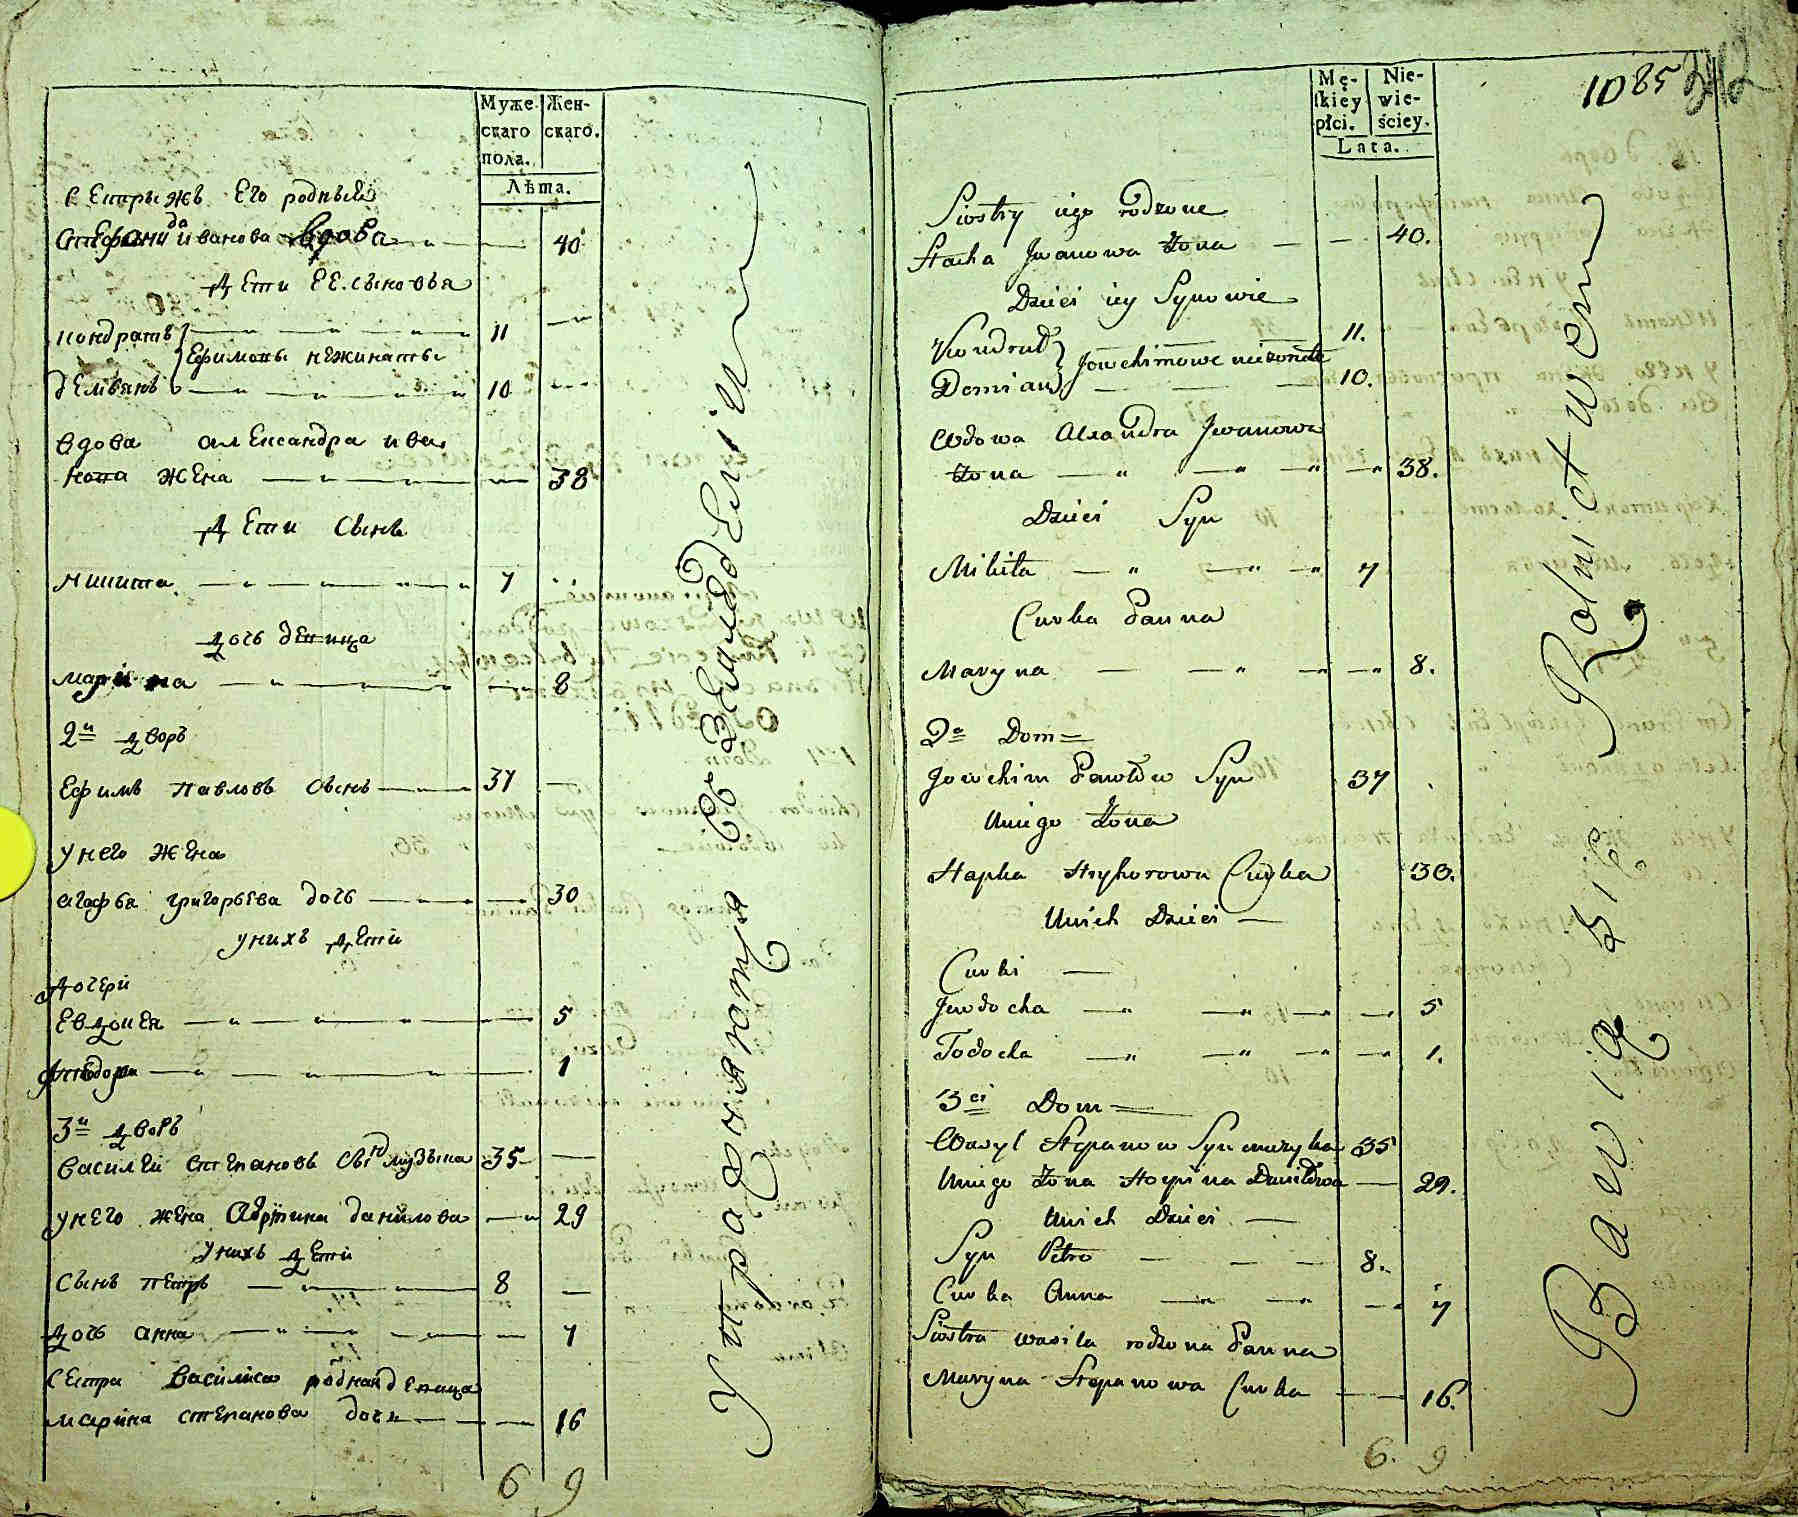 Муже-
скаго
пола.
Жен-
скаго.
Лѣта.
сестры жъ Его родныя
Стефанида иванова вдова 40
дети ЕЕ. сыновья
кондратъ 11
Ефимовы нежинаты
демьянъ 10
вдова александра ива
нова жена 38
дети сынъ
никита 7
дочь девица
марина 8
2й дворъ
Ефимъ павловъ сынъ 37
у него жена
агафья григорьева дочь 30
у нихъ дети
дочери
Евдокея 5
1
3й дворъ
василей степановъ музыка 35
у него жена данилова 29
у нихъ дети
сынъ петръ 8
дочь анна 7
сестра василиса родная девица
марина степанова дочь 16
6 9
Упражняются въ Земледелiи
Mę-
skiey
płci.
Nie-
wie-
ściey.
Lata.
1085
Siostry iego rodzone
Stacha Jwanowa Żona 40.
Dzieci iey Synowie
Kondrat 11.
Jowchimowe nieżonate
Demian 10.
Wdowa Alxandra Jwanowa
Żona 38.
Dzieci Syn
Mikita 7
Curka Panna
Maryna 8.
2e Dom
Jowchim Pawłów Syn 37
Uniego Żona
Hapka Hryhorowa Curka 30.
Unich Dzieci
Curki
Jewdocha 5
Todocha 1.
3ci Dom
Wasyl Stepanow Syn muzyka 35
Uniego Żona Daniłowa 29.
Unich Dzieci
Syn Petro 8.
Curka Anna 7
Siostra wasila rodzona Panna
Maryna Stepanowa Curka 16.
6. 9
Bawią się Rolnictwem